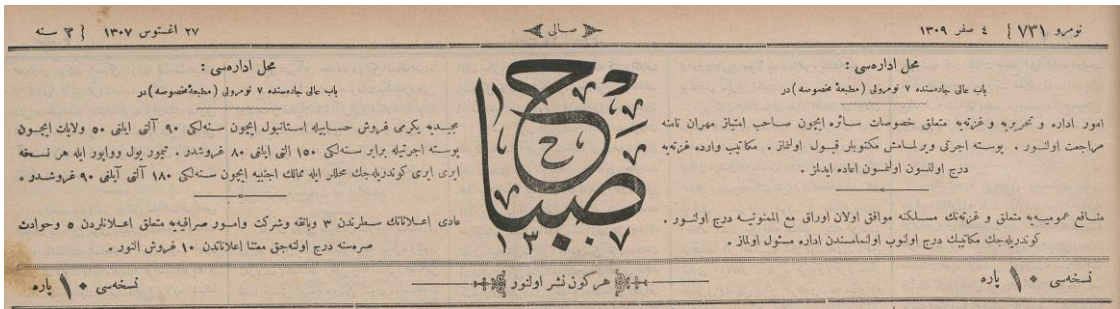 نومرو ٧٣١ { ٤ صفر ١٣٠٩
صالی
٢٧ اغستوس ١٣٠٧ } ٣ سنه
محل اداره‌سی :
باب عالی جاده‌سنده ٧ نومرولی ( مطبعهٔ مخصوصه ) در
امور اداره و تحریریه و غزته‌یه متعلق خصوصات سائره ایچون صاحب امتیاز مهران نامنه
مراجعت اولنور . پوسته اجرتی ویرلمامش مکتوبلر قبول اولنماز . مکاتیب وارده غزته‌یه
درج اولنسون اولنمسون اعاده ایدلز .
منافع عمومیه‌یه متعلق و غزته‌نك مسلکنه موافق اولان اوراق مع الممنونیه درج اولنور .
کوندریله‌جك مکاتیبك درج اولنوب اولنماسندن اداره مسئول اولماز .
صباح
١٣٠٧
محل اداره‌سی :
باب عالی جاده‌سنده ٧ نومرولی ( مطبعهٔ مخصوصه ) در
مجیدیه یکرمی غروش حسابیله استانبول ایچون سنه‌لکی ٩٠ آلتی ایلغی ٥٠ ولایات ایچون
پوسته اجرتیله برابر سنه‌لکی ١٥٠ التی ایلغی ٨٠ غروشدر . تیمور یول وواپور ایله هر نسخه
ایری ایری کوندریله‌جك محللر ایله ممالك اجنبیه ایچون سنه‌لکی ١٨٠ آلتی آیلغی ٩٠ غروشدر .
عادی اعلاناتك سطرندن ٣ وبانقه وشرکت وامور صرافیه‌یه متعلق اعلانلردن ٥ وحوادث
صره‌سنه درج اولنه‌جق معتنا اعلاناتدن ١٠ غروش النور .
نسخه‌سی ١٠ پاره
هر کون نشر اولنور
نسخه‌سی ١٠ پاره